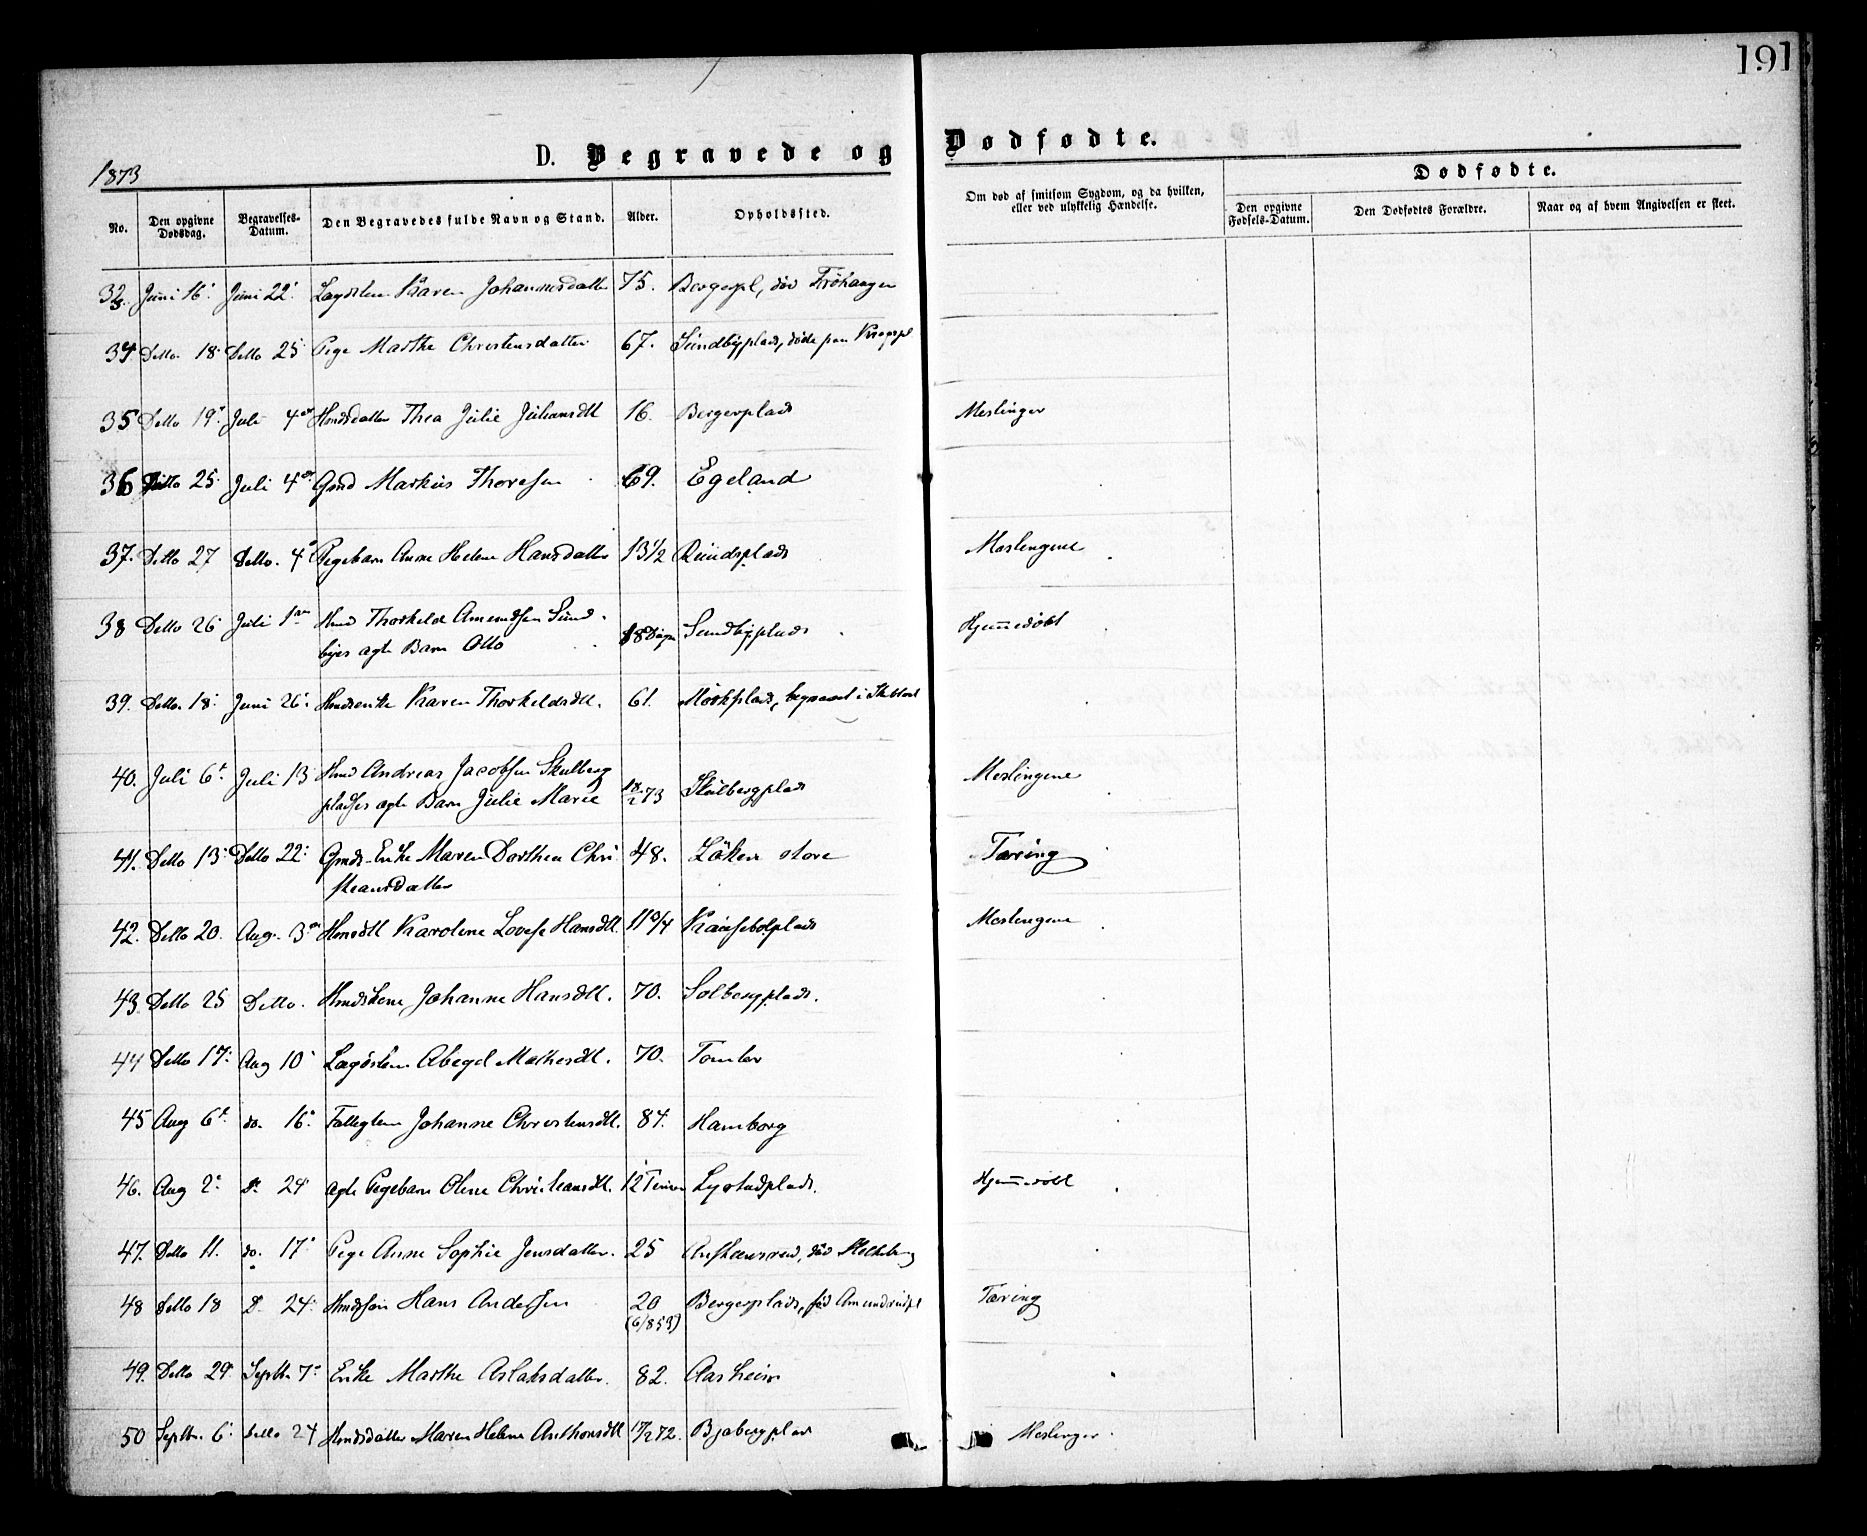 191
D. Begravede og Dødfødte.
1873
No. Den opgivne Dødsdag. Begravelses-Datum. Den Begravedes fulde Navn og Stand. Alder. Opholdssted. Om død af smitsom Sygdom, og da hvilken, eller ved ulykkelig Hændelse. Dødfødte.
Den opgivne Fødsels-Datum. Den Dødfødtes Forældre. Naar og af hvem Angivelsen er skeet.
Juni 16. Juni 22. Karen Johannesdatter 75. Bergerpl, død Frøhaugen
34. Detto 18. Detto 25 Pige Marthe Christensdatter 67. Sundbyplads, døde paa
35 Detto 19. Juli 4de Hmdsdatter Thea Julie Juliansdtt 16. Bergerplads Meslinger
36 Ditto 25. Juli 4de Gmd Markus Thoresen 69. Egeland
37. Detto 27 Detto. 4 Pigebarn Anne Helene Hansdatter 13½ Rundsplads Meslingene
38 Detto 26 Juli 1 Hmd Thorkeld Amundsen Sund-
byes ægte Barn Otto 18 Dage Sundbyplads Hjemmedøbt
39. Detto. 18. Juni 26. Hmdsenke Karen Thorkeldsdtt. 61. Mørkplads, begravet i
40. Juli 6t. Juli 13 Hmd Andreas Jacobsen Skulberg
pladses ægte Barn Julie Marie 18/1 73 Skulbergplads Meslingene
41. Detto 13. Detto 22. Gmds-Enke Maren Dorthea Chri
steansdatter 48. Løken store Tæring
42. Detto 20. Aug. 3 Hmsdtt Karoline Lovise Hansdtt. 11 3/4 Meslingene
43. Detto 25 Detto. Johanne Hansdtt. 70. Solbergplads.
44 Detto 17. Aug 10 Lægdslem Abegel Mathisdtt. 70. Tomter
45 Aug 6t. do. 16. Fattiglem Johanne Christensdtt. 84. Hamborg
46. Aug 2. D. 24 ægte Pigebarn Oline Christiansdtt. 12 Timer Lystadplads. Hjemmedøbt
47. Detto 11. do. 17 Pige Anne Sophie Jensdatter. 25
48 Detto 18 D. 24. Hmdssøn Hans Andersen 20
(6/853) Bergerplads, Tæring
49. Detto 29 Septb. 7. Enke Marthe Aslaksdatter. 82. Aasheim
50 Septbr. 6. Detto 24 Hmdsdatter Maren Helene Anthonsdtt 17/2 72. Bjabergplads Meslinger